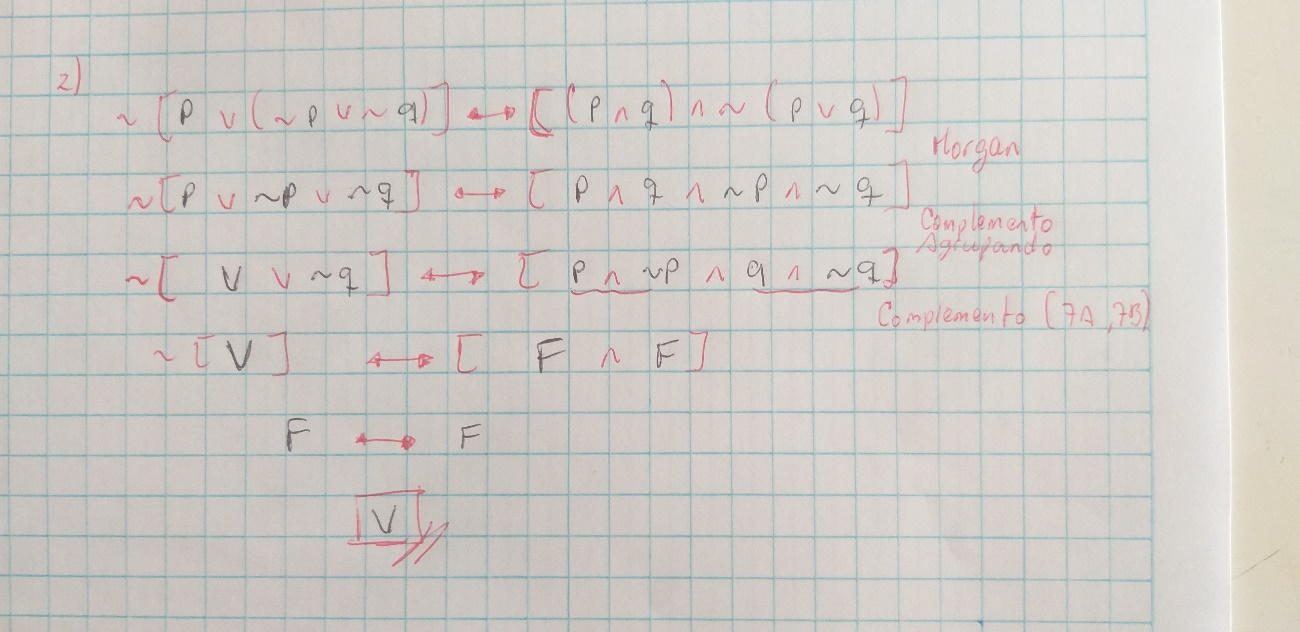 2)
~ [ p ∨ ( ~p ∨ ~ q ) ] ↔ [ ( p ∧ q ) ∧ ~ ( p ∨ q ) ]
Morgan
~ [ p ∨ ~p ∨ ~q ] ↔ [ p ∧ q ∧ ~p ∧ ~ q ]
Complemento
Agrupando
~ [ V ∨ ~q ] ↔ [ p ∧ ~p ∧ q ∧ ~q ]
Complemento (7A, 7B)
~ [ V ] ↔ [ F ∧ F ]
F ↔ F
V